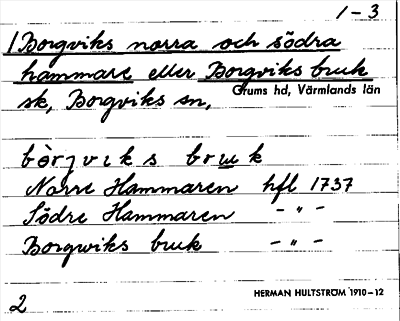 1-3
1 Borgviks norra och södra
hammare eller Borgviks bruk
sk, Borgviks sn,
Grums hd, Värmlands län
bòrjviks bruk
Norre Hammaren hfl 1737
Södre Hammaren - " -
Borgwiks bruk - " -
2
HERMAN HULTSTRÖM 1910-12